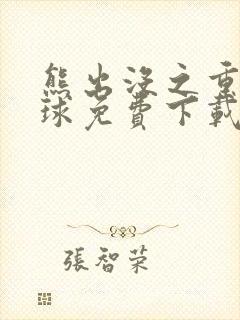 熊出没之重
球免費下載
張智荣